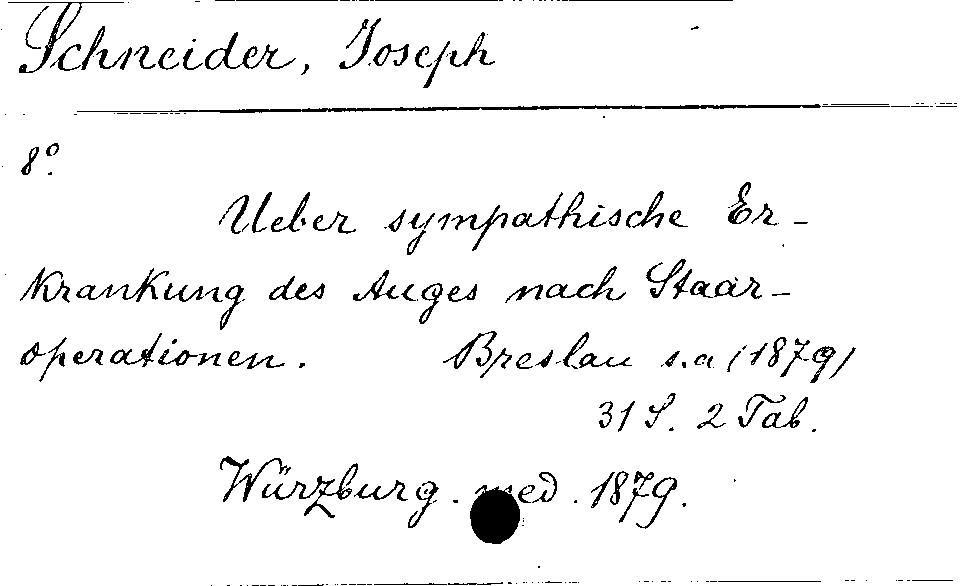 Schneider, Joseph
8°.
Ueber sympathische Er-
krankung des Auges nach Staar-
operationen. Breslau s.a (1879)
31 S. 2 Tab.
Würzburg. med. 1879.